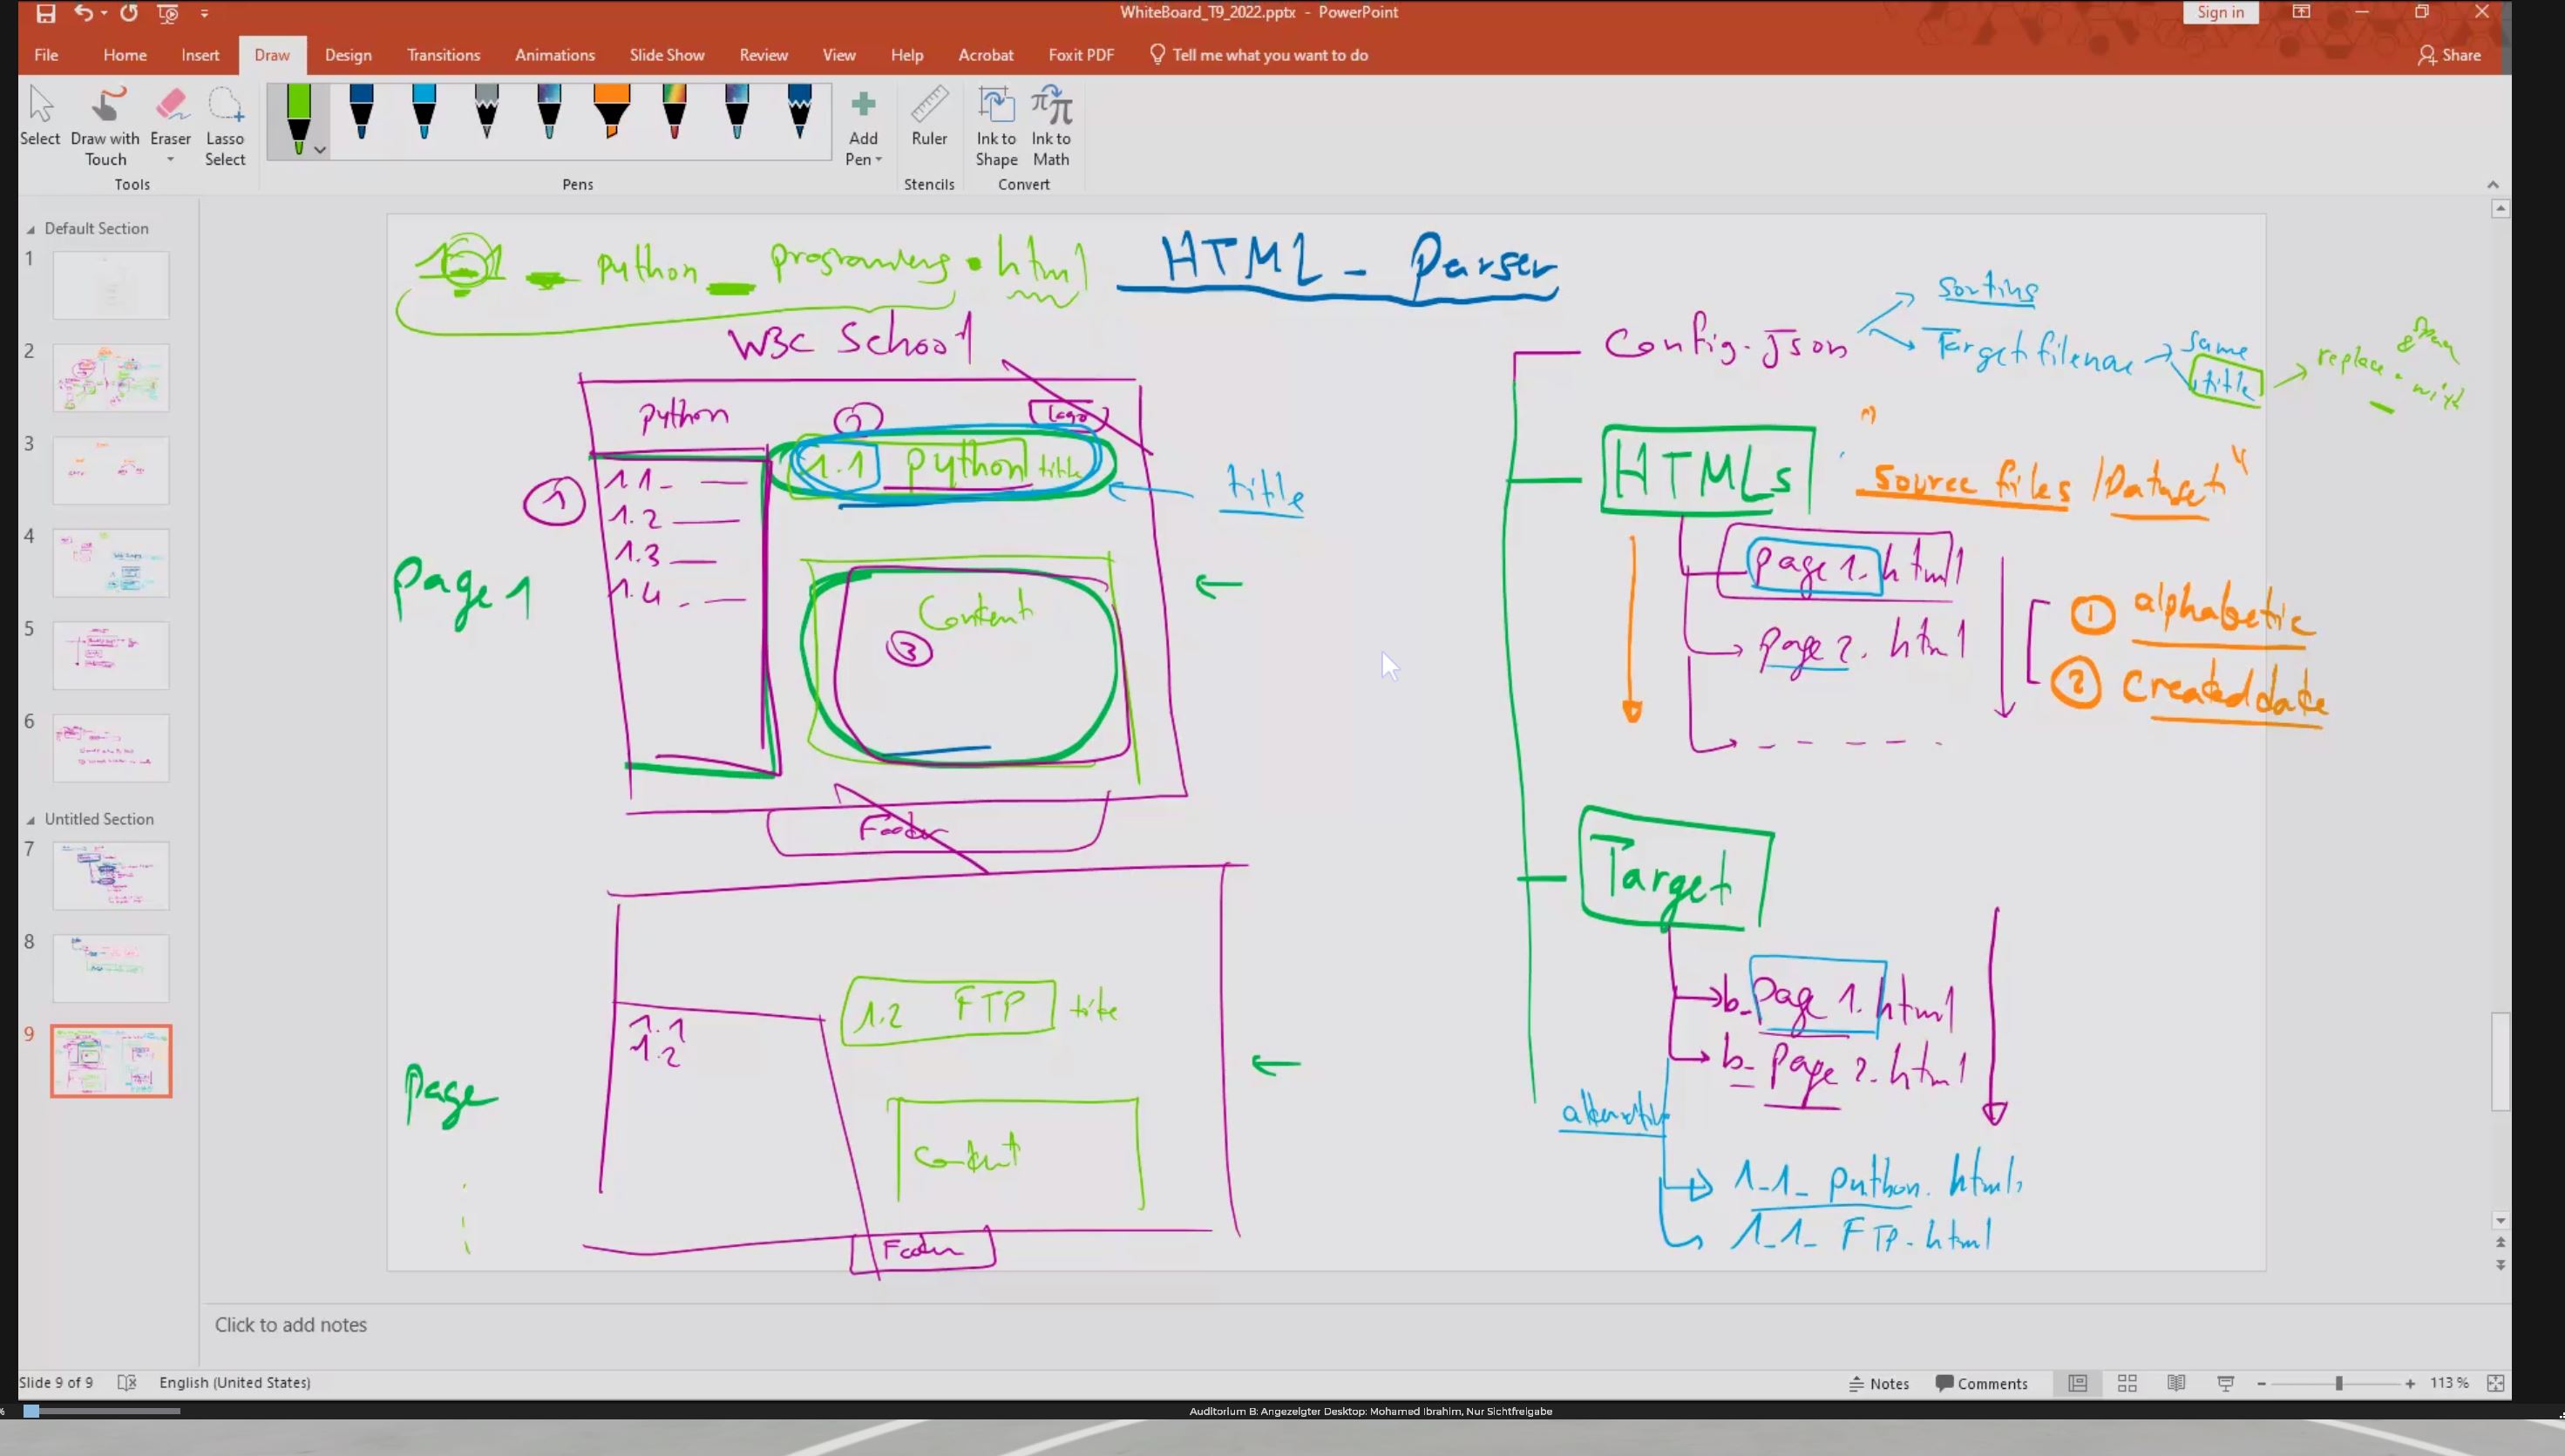 WhiteBoard_T9_2022.pptx - PowerPoint
Sign in
File Home Insert Draw Design Transitions Animations Slide Show Review View Help Acrobat Foxit PDF Tell me what you want to do
Share
Select
Draw with Touch
Eraser
Lasso Select
Add Pen
Ruler
Ink to Shape
Ink to Math
Tools
Pens
Stencils
Convert
Default Section
1
2
3
4
5
6
Untitled Section
7
8
9
_ python _ programing . html
HTML - Parser
W3C School
python
2
Logo
1
1.1 -
1.2
1.3
1.4 -
1.1 python title
title
Page 1
Content
3
Footer
Page
1.1
1.2
1.2 FTP title
Content
Footer
Config.Json
sorting
Target filename
same
title
replace . with
HTMLs
Source files / Dataset
page 1. html
page 2. html
1 alphabetic
2 created date
Target
b_ page 1. html
b_ page 2. html
1_1_ python. html
1_1_ FTP. html
Click to add notes
Slide 9 of 9
English (United States)
Notes
Comments
113 %
Auditorium B: Angezeigter Desktop: Mohamed Ibrahim, Nur Sichtfreigabe